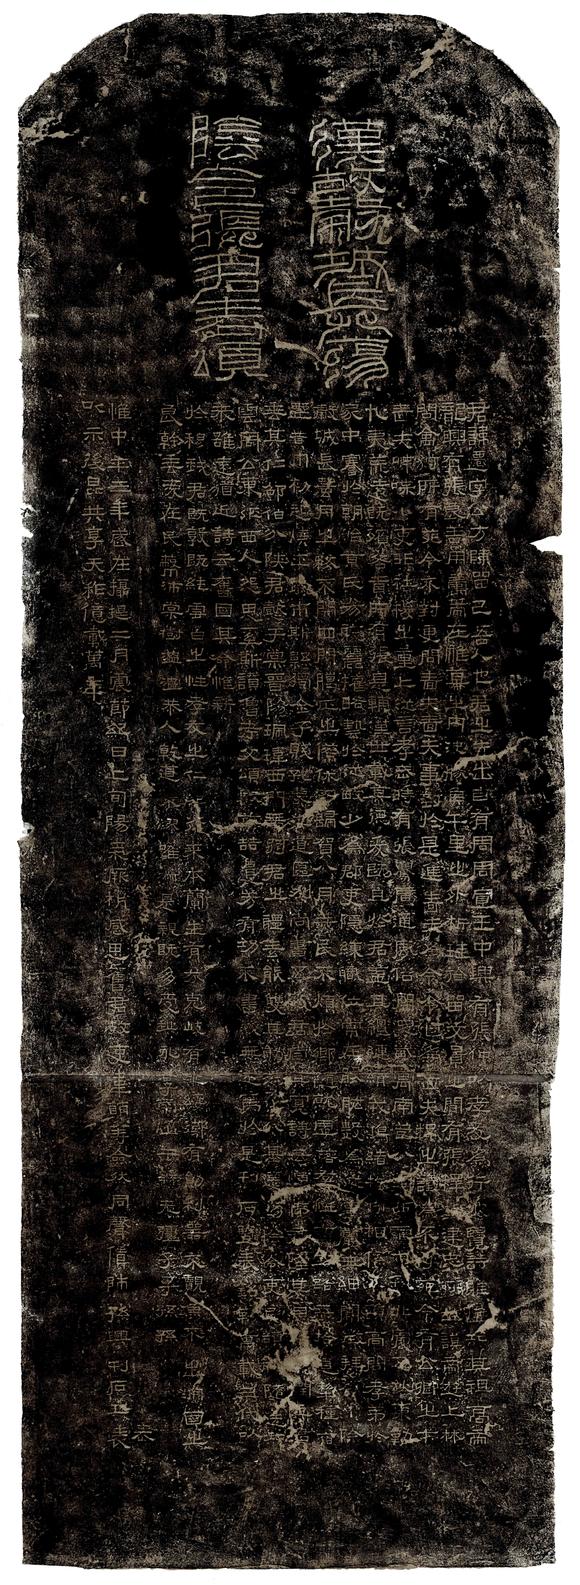 漢故穀城長蕩
陰令張君表頌
君諱遷字公方陳留己吾人也君之先出自有周周宣王中興有張仲以孝友為行披覽詩雅煥知其祖高帝
龍興有張良善用籌策在帷幕之內決勝負千里之外析珪於留文景之間有張釋之建忠弼之謨帝遊上林
問禽狩所有苑令不對更問嗇夫嗇夫事對於是進嗇夫為令令退為嗇夫釋之議為不可苑令有公卿之才
嗇夫喋喋小吏非社稷之重上從言孝武時有張騫廣通風俗開定畿寓南苞八蠻西羈六戎北震五狄東勤
九夷荒遠既殯各貢所有張是輔漢世載其德爰既且於君蓋其繵縺纘戎鴻緒牧守相係不殞高問孝弟於
家中謇於朝治京氏易聰麗權略藝於從畋少為郡吏隱練職位常在股肱數為從事聲無細聞徵拜郎中除
穀城長蠶月之務不閉四門臘正之祭休囚歸賀八月筭民不煩於鄉隨就虛落存恤高年路無拾遺犁種宿
野黃巾初起燒平城市斯縣獨全子賤孔蔑其道區別尚書五教君崇其寬詩云愷悌君隆其恩東里潤色君
垂其仁邵伯分陝君懿于棠晉陽珮瑋西門帶弦君之體素能雙其勛流化八基遷蕩陰令吏民頡頏隨送如
雲周公東征西人怨思奚斯讚魯考父頌殷前喆遺芳有功不書後無述焉於是刊石豎表銘勒萬載三代以
來雖遠猶近詩云舊國其命惟新
於穆我君既敦既純雪白之性孝友之仁紀行來本蘭生有芬克岐有兆綏御有勛利器不覿魚不出淵國之
良幹垂愛在民蔽沛棠樹溫溫恭人乾道不繆唯淑是親既多受祉永享南山干祿無疆子子孫孫
惟中平三年歲在攝提二月震節紀日上旬陽氣厥析感思舊君故吏韋萌等僉然同聲賃師孫興刊石立表
以示後昆共享天祚億載萬年